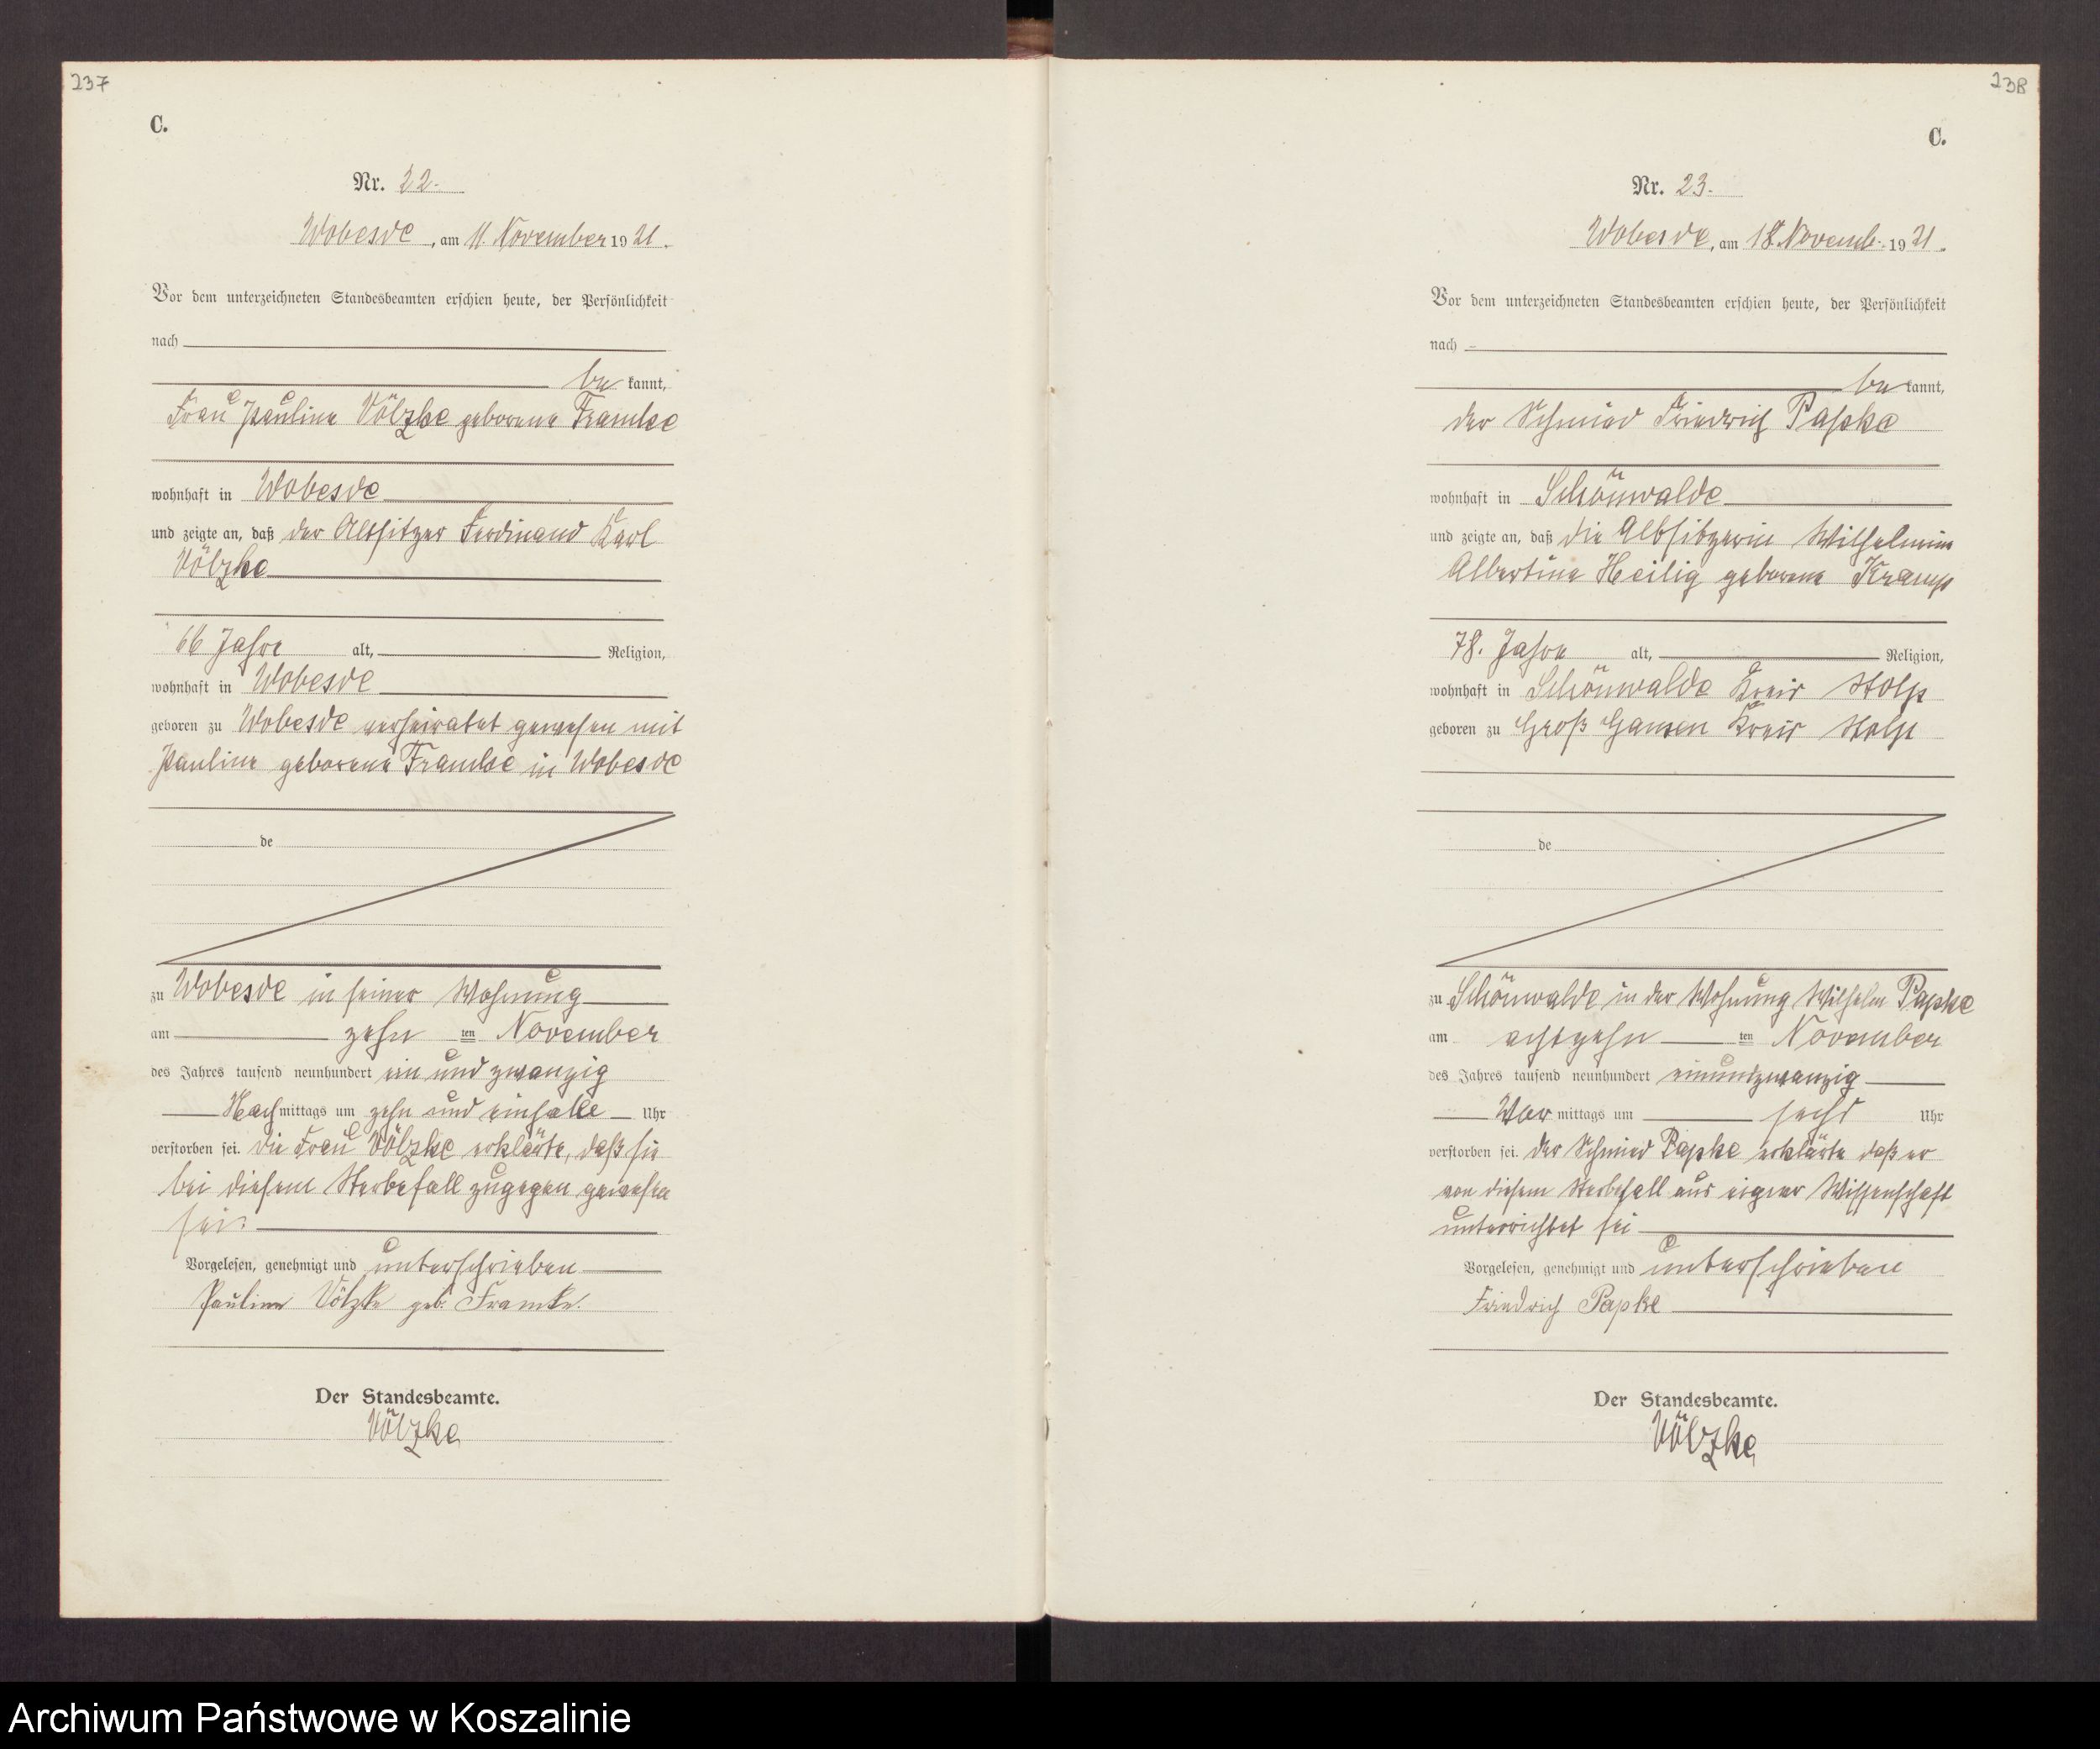 237
C.
Nr. 22.
Wobesde, am 11. November 1921.
Vor dem unterzeichneten Standesbeamten erschien heute, der Persönlichkeit
nach
be kannt,
Frau Pauline Völzke geborene Framke
wohnhaft in Wobesde
und zeigte an, daß der Altsitzer Ferdinand Karl
Völzke
66 Jahre alt, Religion,
wohnhaft in Wobesde
geboren zu Wobesde verheiratet gewesen mit
Pauline geborene Framke in Wobesde
de
zu Wobesde in seiner Wohnung
am zehn ten November
des Jahres tausend neunhundert ein und zwanzig
Nachmittags um zehn und einhalb Uhr
verstorben sei. die Frau Völzke erklärte, daß sie
bei diesem Sterbefall zugegen gewesen
sei.
Vorgelesen, genehmigt und unterschrieben
Pauline Völzke geb. Framke.
Der Standesbeamte.
Völzke
238
C.
Nr. 23.
Wobesde, am 18. Novemb. 1921.
Vor dem unterzeichneten Standesbeamten erschien heute, der Persönlichkeit
nach
be kannt,
der Schmied Friedrich Papke
wohnhaft in Schönwalde
und zeigte an, daß die Altsitzerin Wilhelmine
Albertine Heilig geborene Kramp
78. Jahre alt, Religion,
wohnhaft in Schönwalde Kreis Stolp
geboren zu Groß Gansen Kreis Stolp
de
zu Schönwalde in der Wohnung Wilhelm Papke
am achtzehn ten November
des Jahres tausend neunhundert einundzwanzig
Vor mittags um sechs Uhr
verstorben sei. Der Schmied Papke erklärte daß er
von diesem Sterbefall aus eigner Wissenschaft
unterrichtet sei
Vorgelesen, genehmigt und unterschrieben
Friedrich Papke
Der Standesbeamte.
Völzke
Archiwum Państwowe w Koszalinie